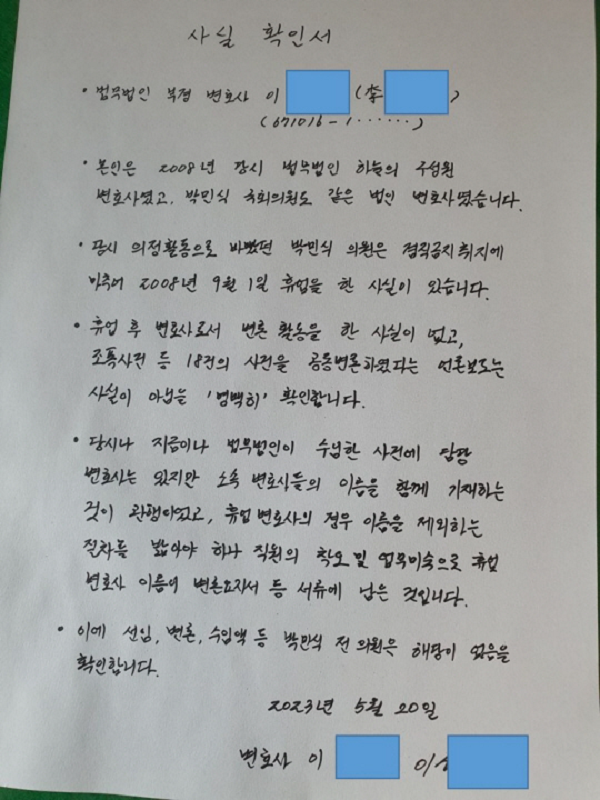 사실 확인서
• 법무법인 부경 변호사 이 (李 )
(671016-1······)
• 본인은 2008년 당시 법무법인 하늘의 구성원
변호사였고, 박민식 국회의원도 같은 법인 변호사였습니다.
• 당시 의정활동으로 바빴던 박민식 의원은 겸직금지 취지에
맞추어 2008년 9월 1일 휴업을 한 사실이 있습니다.
• 휴업 후 변호사로서 변론 활동을 한 사실이 없고,
조폭사건 등 18건의 사건을 공동변론하였다는 언론보도는
사실이 아님을 '명백히' 확인합니다.
• 당시나 지금이나 법무법인이 수임한 사건에 담당
변호사는 있지만 소속 변호사들의 이름을 함께 기재하는
것이 관행이었고, 휴업 변호사의 경우 이름을 제외하는
절차를 밟아야 하나 직원의 착오 및 업무미숙으로 휴업
변호사 이름이 변론요지서 등 서류에 남은 것입니다.
• 이에 선임, 변론, 수임액 등 박민식 전 의원은 해당이 없음을
확인합니다.
2023년 5월 20일
변호사 이 이